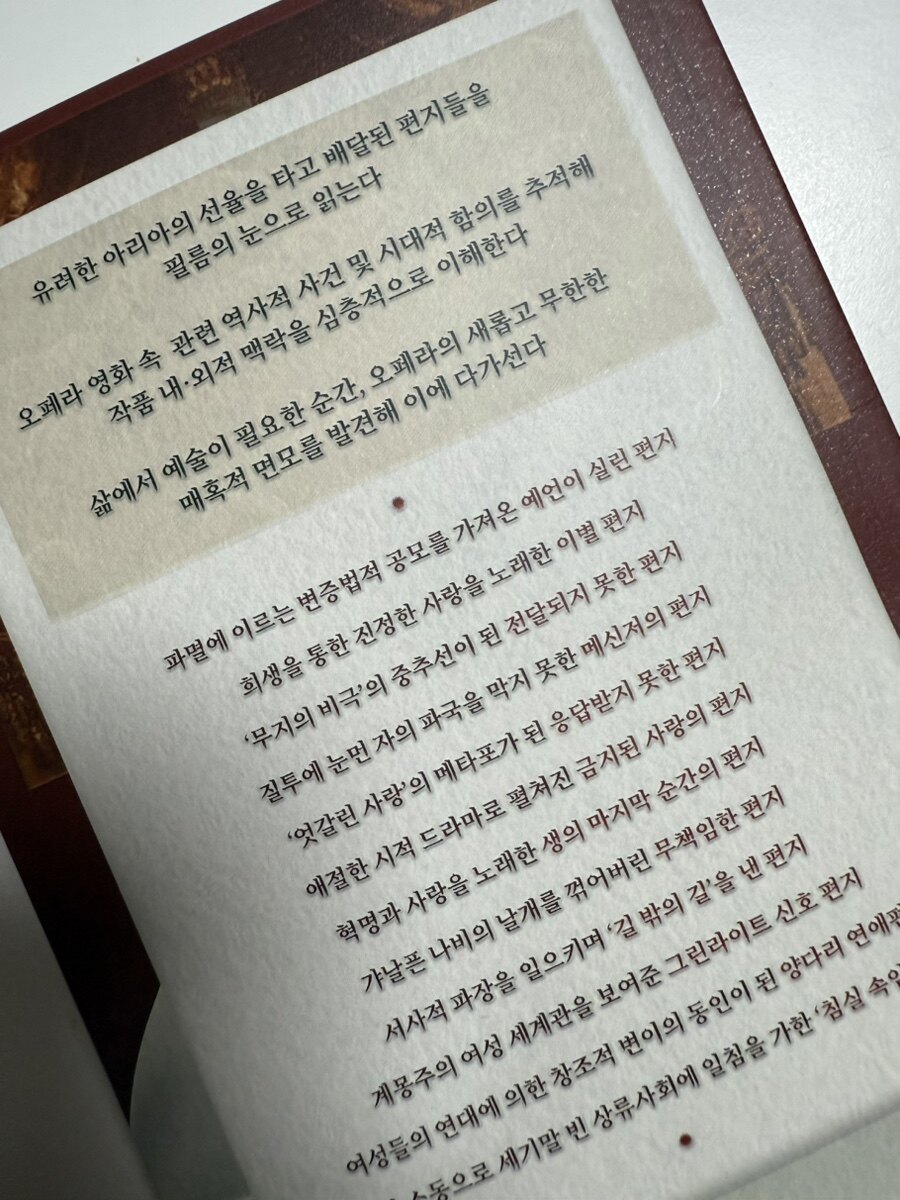 유려한 아리아의 선율을 타고 배달된 편지들을
필름의 눈으로 읽는다
오페라 영화 속 관련 역사적 사건 및 시대적 함의를 추적해
작품 내·외적 맥락을 심층적으로 이해한다
삶에서 예술이 필요한 순간, 오페라의 새롭고 무한한
매혹적 면모를 발견해 이에 다가선다
파멸에 이르는 변증법적 공모를 가져온 예언이 실린 편지
희생을 통한 진정한 사랑을 노래한 이별 편지
‘무지의 비극’의 중추선이 된 전달되지 못한 편지
질투에 눈먼 자의 파국을 막지 못한 메신저의 편지
‘엇갈린 사랑’의 메타포가 된 응답받지 못한 편지
애절한 시적 드라마로 펼쳐진 금지된 사랑의 편지
혁명과 사랑을 노래한 생의 마지막 순간의 편지
갸날픈 나비의 날개를 꺾어버린 무책임한 편지
서사적 파장을 일으키며 ‘길 밖의 길’을 낸 편지
계몽주의 여성 세계관을 보여준 그린라이트 신호 편지
여성들의 연대에 의한 창조적 변이의 동인이 된 양다리 연애편
소동으로 세기말 빈 상류사회에 일침을 가한 ‘침실 속